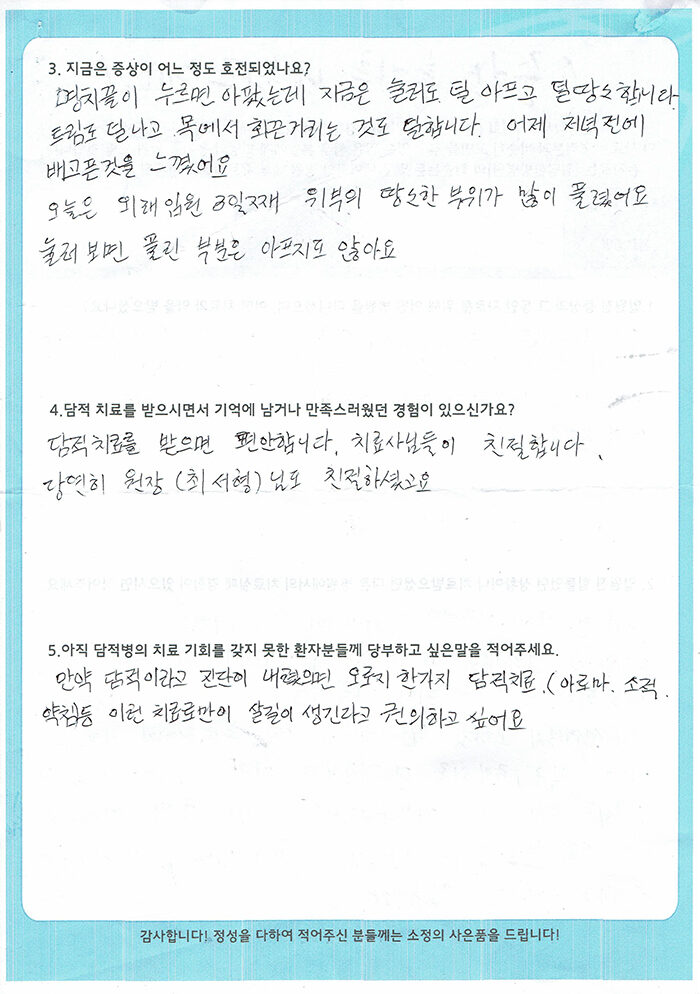 3. 지금은 증상이 어느 정도 호전되었나요?
명치끝이 누르면 아팠는데 지금은 눌러도 덜 아프고 덜 땅땅합니다
트림도 덜나고 목에서 화끈거리는 것도 덜합니다. 어제 저녁전에
배고픈것을 느꼈어요
오늘은 입원 8일째 위부위 땅땅한 부위가 많이 풀렸어요
눌러 보면 풀린 부분은 아프지도 않아요
4.담적 치료를 받으시면서 기억에 남거나 만족스러웠던 경험이 있으신가요?
담적치료를 받으면 편안합니다. 치료사님들이 친절합니다.
당연히 원장 (최서형)님도 친절하셨고요
5.아직 담적병의 치료 기회를 갖지 못한 환자분들께 당부하고 싶은말을 적어주세요.
만약 담적이라고 진단이 내렸으면 오로지 한가지 담적치료.(아로마. 소적.
약침등 이런 치료로만이 살길이 생긴라고 권의하고 싶어요
감사합니다! 정성을 다하여 적어주신 분들께는 소정의 사은품을 드립니다!